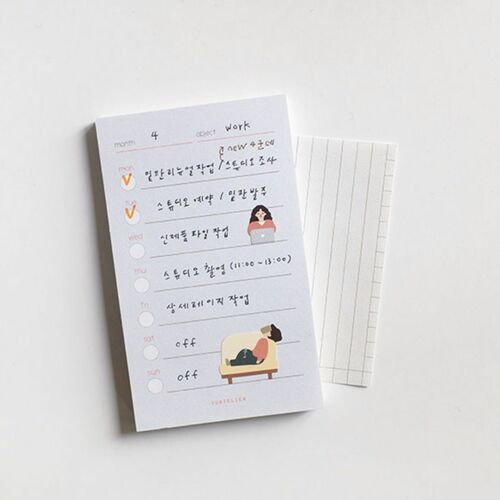 month 4 object work
new 4군데
mon
일판리뉴얼작업 / 스튜디오 조사
tue
스튜디오 예약 / 일판 발주
wed
신제품 파일 작업
thu
스튜디오 촬영 (11:00~13:00)
fri
상세페이지 작업
sat
off
sun
off
YURTELIER